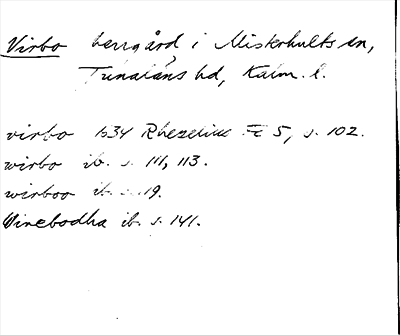 Virbo herrgård i Misterhults sn,
Tunaläns hd, Kalm. l.
virbo 1634 Rhezelius Fc 5, s. 102.
wirbo ib. s. 111, 113.
wirboo ib. s. 19.
Winebodha ib. s. 141.